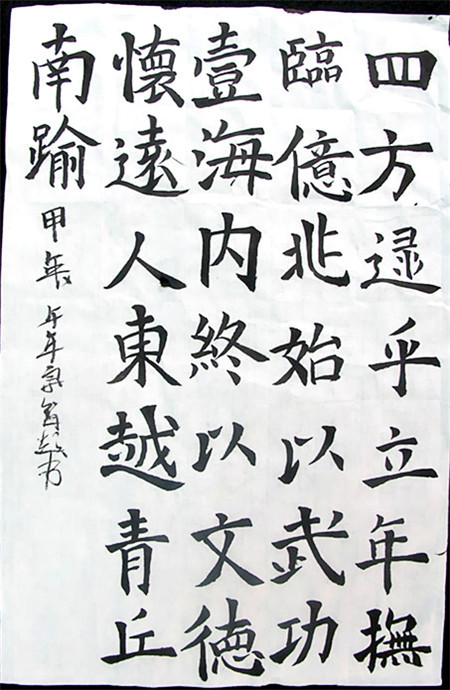 四方逮乎立年撫
臨億兆始以武功
壹海内終以文徳
懷遠人東越青丘
南踰
甲年午年